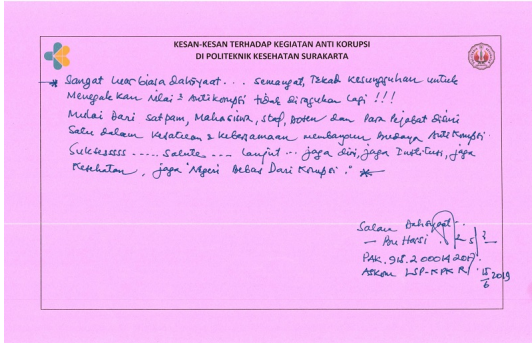 KESAN-KESAN TERHADAP KEGIATAN ANTI KORUPSI
DI POLITEKNIK KESEHATAN SURAKARTA
* Sangat luar biasa Dahsyaat... semangat, Tekad kesungguhan untuk
Menegakkan Nilai2 Antikorupsi tidak diragukan lagi !!!
Mulai Dari satpam, Mahasiswa, staf, Dosen dan Para Pejabat Disini
Satu dalam kesatuan & kebersamaan membangun Budaya Anti Korupsi.
Suksesssss ..... Salute .... lanjut... jaga diri, jaga Institusi, jaga
Kesehatan, jaga "Negeri Bebas Dari Korupsi." *
Salam Dahsyaat..
PAK. 918.2 00014 2017.
LSP-KPK RI 15/6 2019